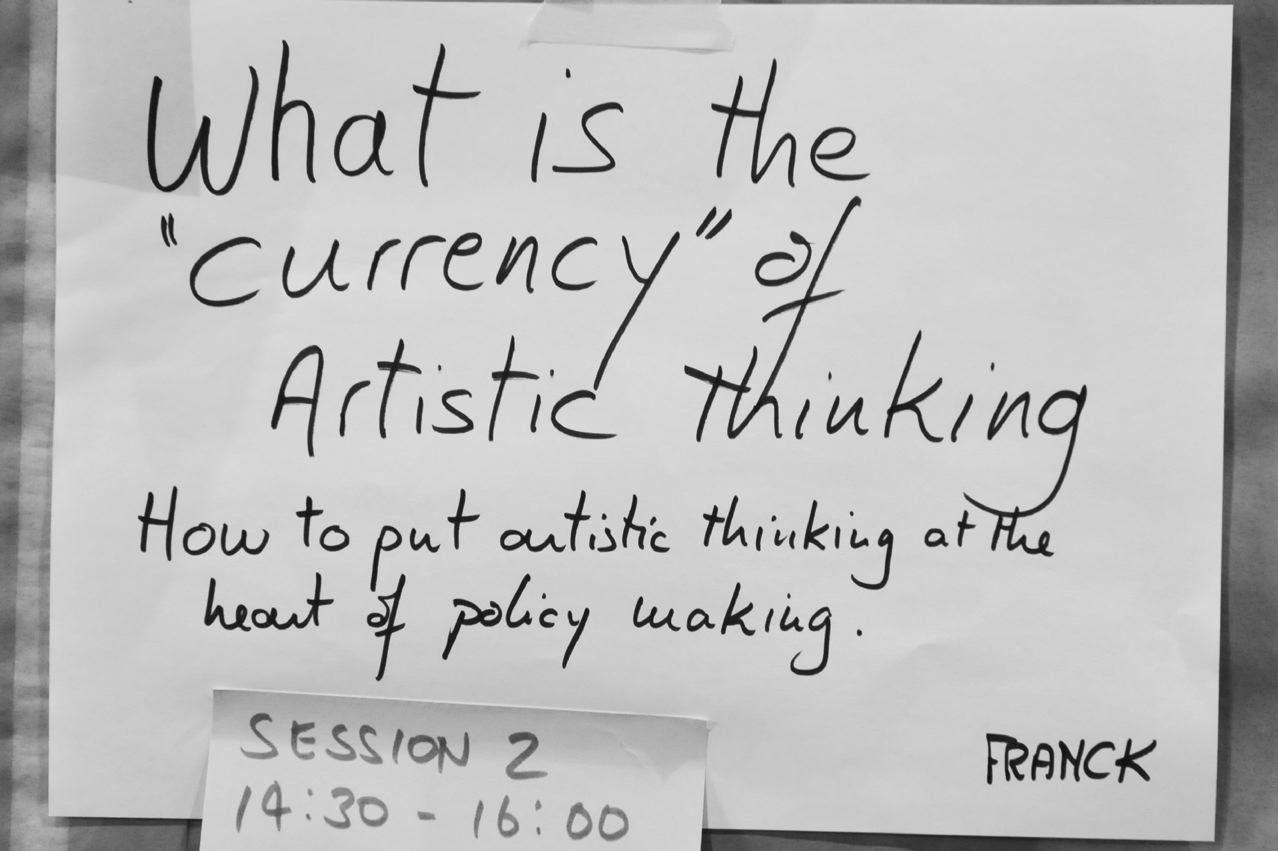 What is the
"currency" of
Artistic thinking
How to put artistic thinking at the
heart of policy making.
FRANCK
SESSION 2
14:30 - 16:00